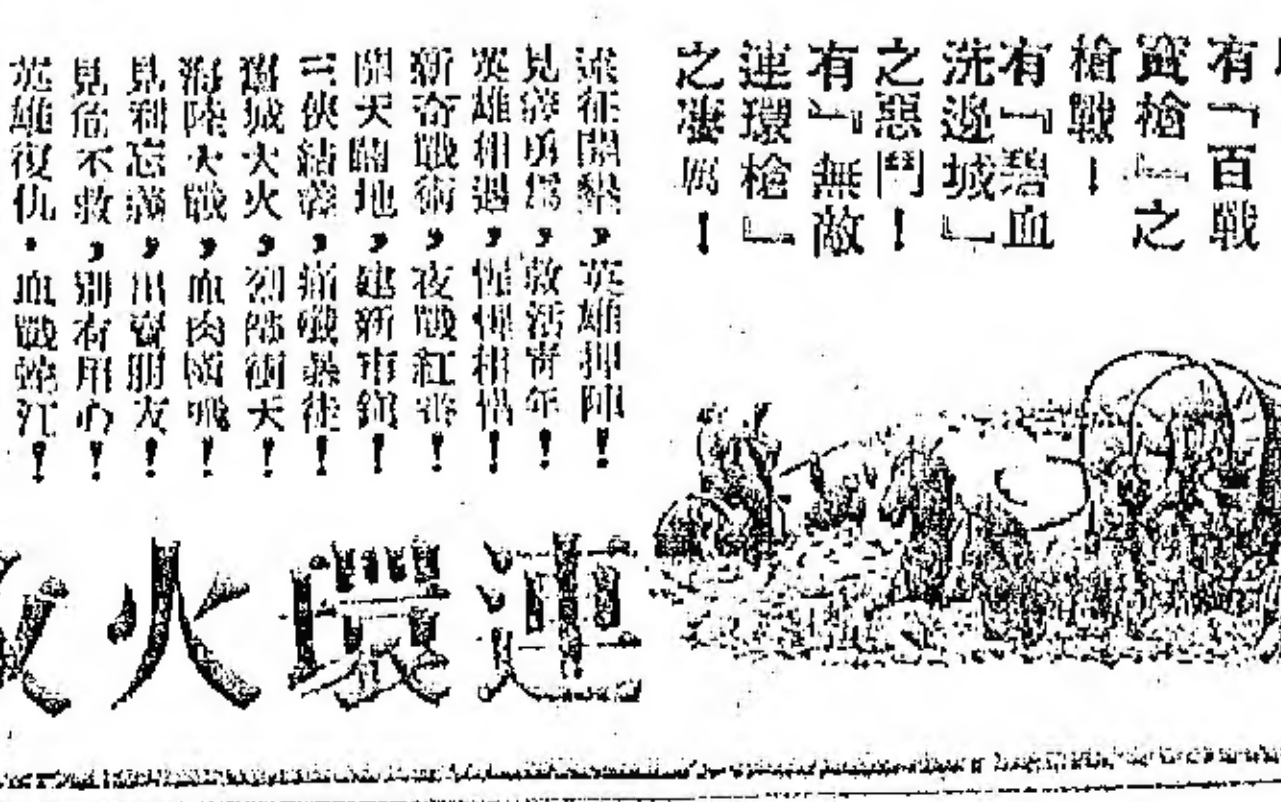 有『百戰
寳槍』之
槍戰！
有『碧血
洗邊城』
之惡鬥！
有『無敵
連環槍』
之凄厲！
遠征開墾，英雄押陣！
見義勇爲，救活青年！
英雄相遇，惺惺相惜！
新奇戰術，夜戰紅番！
開天闢地，建新市鎮！
三俠結義，痛殲暴徒！
城大火，烈燄衝天！
海陸大戰，血肉橫飛！
見利忘義，出賣朋友！
見危不救，別有用心！
英雄復仇，血戰江！
連環火